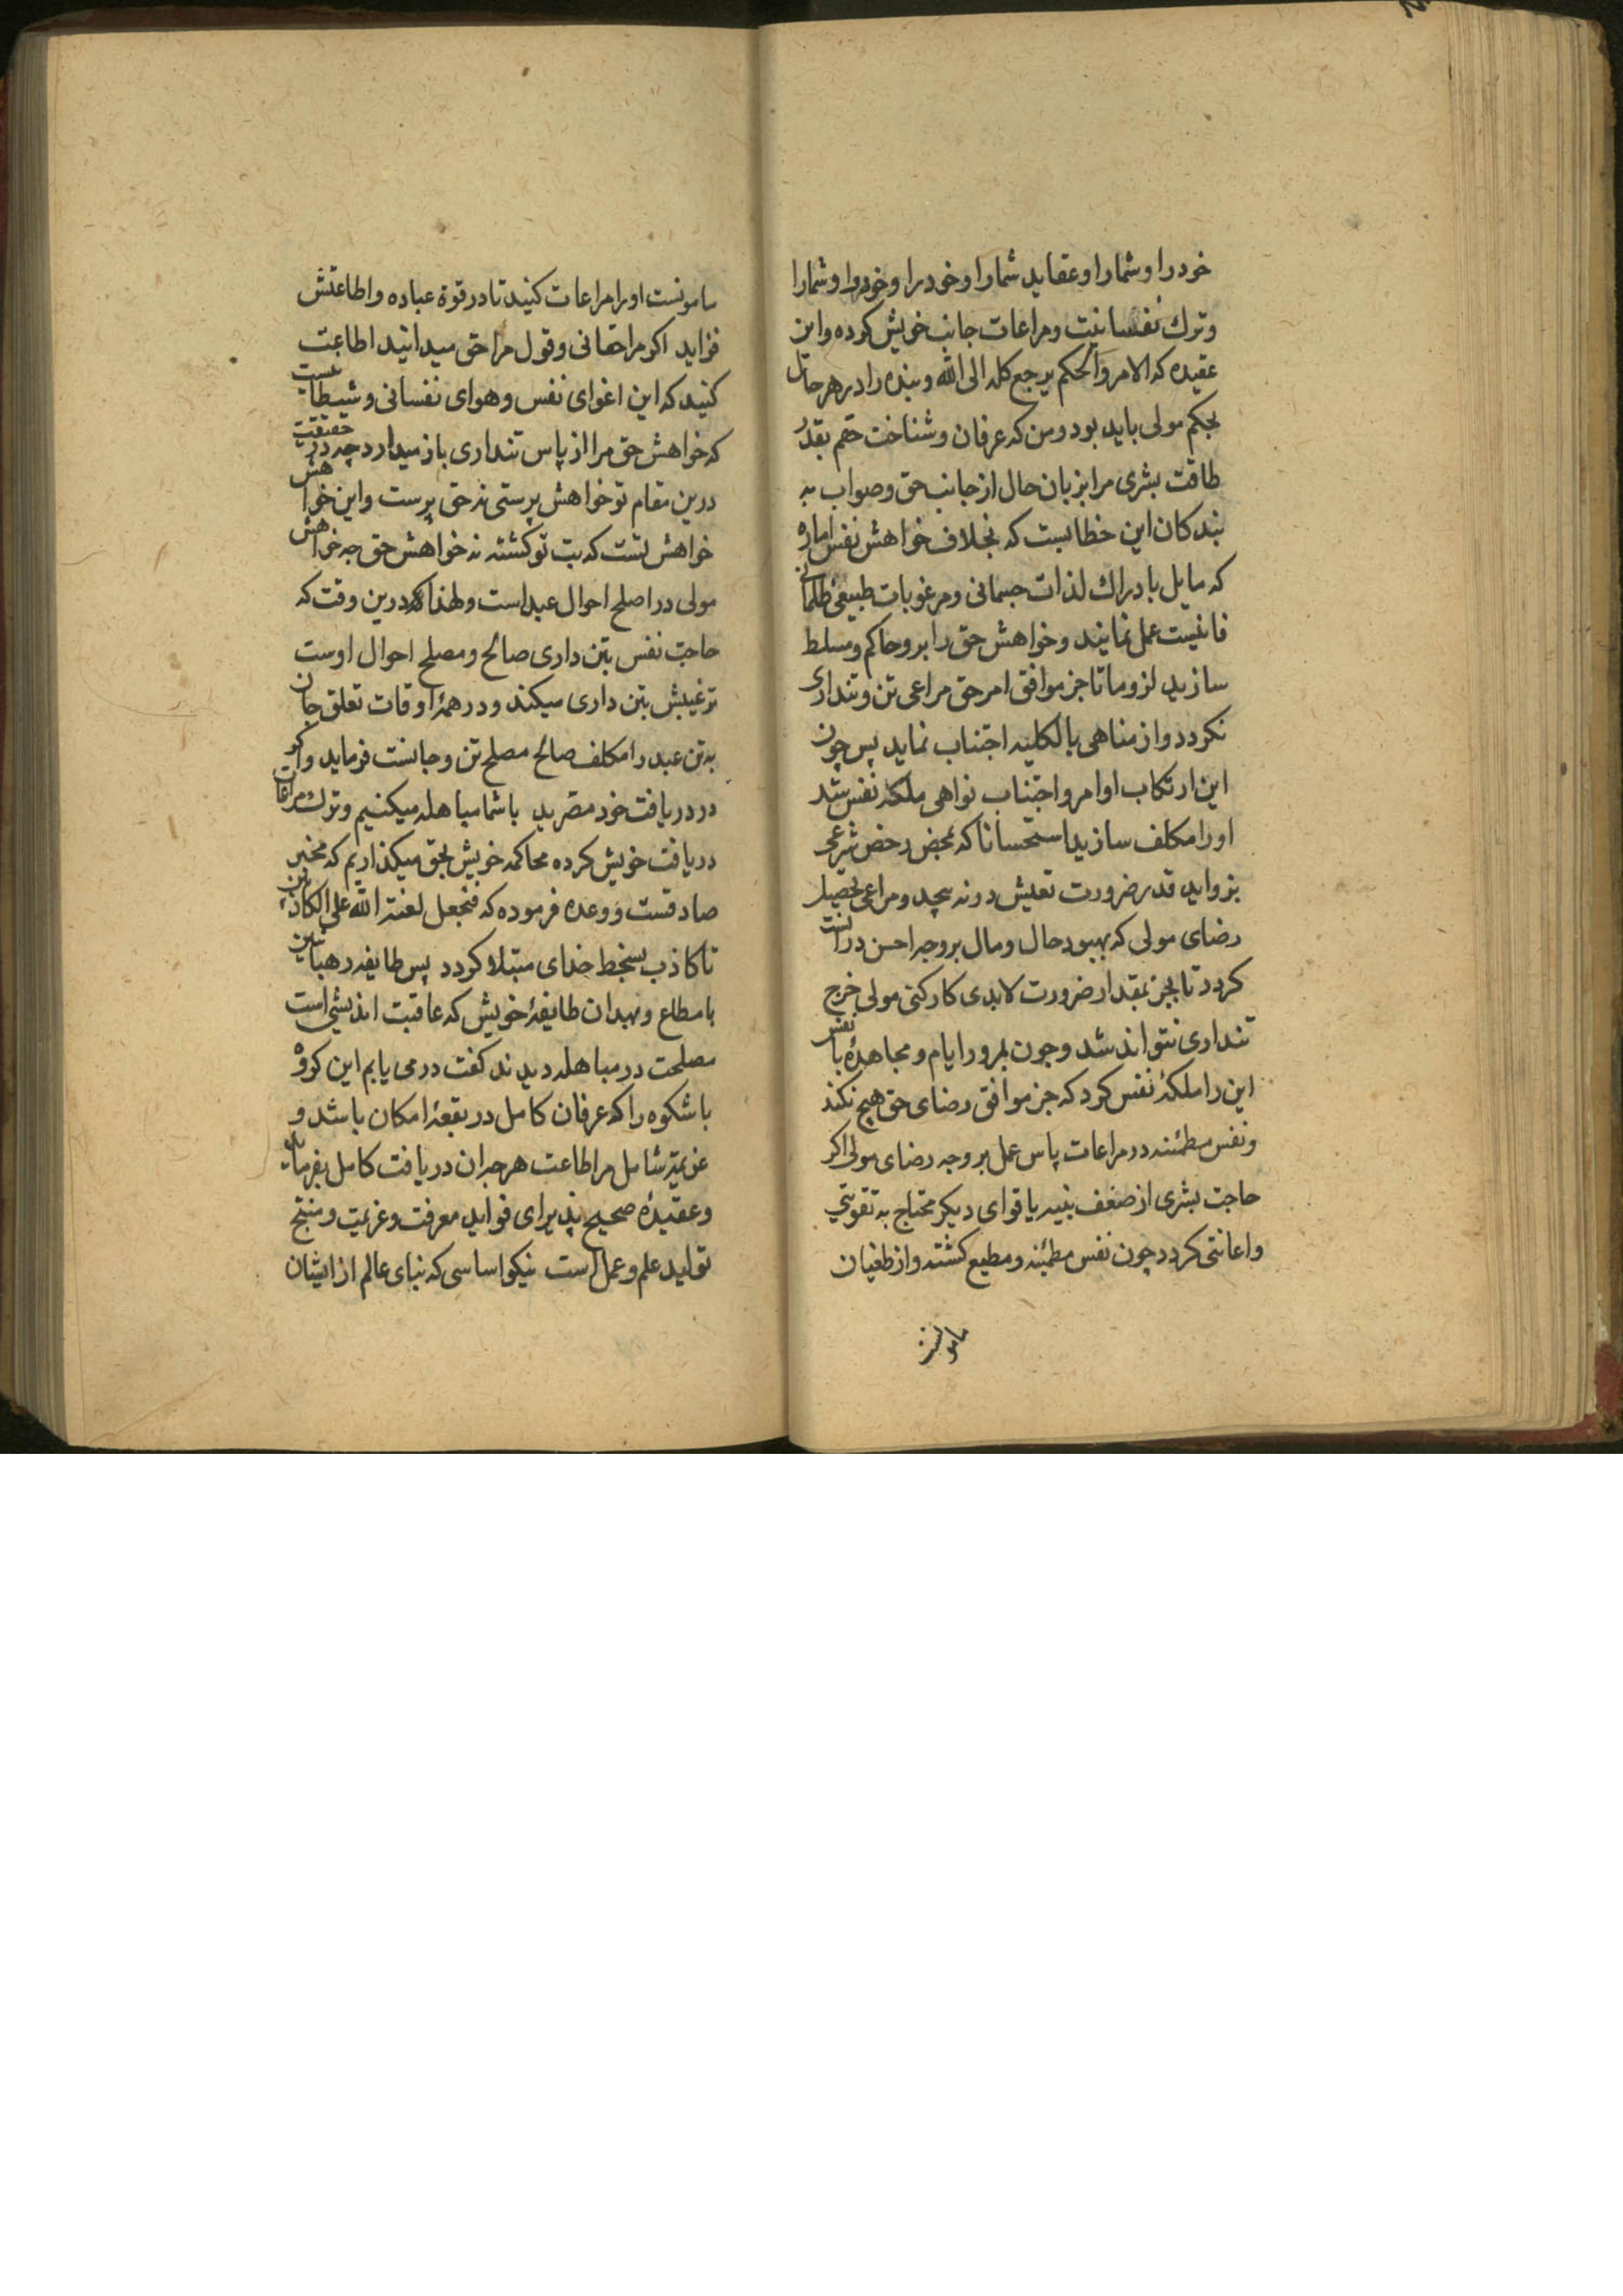 خود را و شما را و عقاید شما را و خود را و خود را و شما را
و ترک نفسانیت و مراعات جانب خویش کرده و این
عقیده که الامر والحکم یرجع کله الی الله و بنده را در هر حال
بحکم مولی باید بود و من که عرفان و شناخت حقم بقدر
طاقت بشری مرا بزبان حال از جانب حق و صواب به
بندکان این خطابست که بخلاف خواهش نفس اماره
که مایل بادراک لذات جسمانی و مرغوبات طبیعی ظلمانی
فانیست عمل نمایند و خواهش حق را برو حاکم و مسلط
سازید لزوما تا جز موافق امر حق مراعی تن و تنداری
نکردد و از مناهی بالکلیه اجتناب نماید پس چون
این ارتکاب اوامر و اجتناب نواهی ملکه نفس شد
او را مکلف سازید استحسانا که بمحض رخص شرعی
بزواید قدر ضرورت تعیش دونه پیچد و مراعی تحصیل
رضای مولی که بهبود حال و مال بر وجه احسن در انست
کردد تا بجز بمقدار ضرورت لابدی کارکنی مولی خرج
تنداری نتواند شد و چون بمرور ایام و مجاهدهٔ با نفس
این را ملکهٔ نفس کرد که جز موافق رضای حق هیچ نکند
و نفس مطمئنه در مراعات پاس عمل بر وجه رضای مولی اکر
حاجت بشری از ضعف بنیه یا قوای دیکر محتاج به تقویتی
و اعانتی کردد چون نفس مطمئنه و مطیع کشته و از طغیان
مامونست
مامونست او را مراعات کنید تا در قوة عباده و اطاعتش
فزاید اکر مرا حقانی و قول مرا حق میدانید اطاعت
کنید که این اغوای نفس و هوای نفسانی و شیطانیست
که خواهش حق مرا از پاس تنداری باز میدارد چه در حقیقت
درین مقام تو خواهش پرستی نه حق پرست و این خواهش
خواهش تست که بت تو کشته نه خواهش حق چه خواهش
مولی در اصلح احوال عبد است و لهذا که درین وقت که
حاجت نفس بتن داری صالح و مصلح احوال اوست
ترغیبش بتن داری میکند و در همهٔ اوقات تعلق جان
به تن عبد را مکلف صالح مصلح تن و جانست فرماید و اکر
در دریافت خود مصرید با شما مباهله میکنیم و ترک مراعات
دریافت خویش کرده محاکمه خویش بحق میکذاریم که مخبر
صادقست و وعده فرموده که فنجعل لعنة الله علی الکاذبین
تا کاذب بسخط خدای مبتلا کردد پس طایفه رهبانین
با مطاع و بهدان طایفهٔ خویش که عاقبت اندیشی است
مصلحت در مباهله دیدند کفت درمی یابم این کروه
با شکوه را که عرفان کامل در بقعهٔ امکان باشد و
عزیمتی شامل مر اطاعت هر چه ان دریافت کامل بفرماید
و عقیدهٔ صحیح پذیرای فواید معرفت و عزیمت و منتج
تولید علم و عمل است نیکو اساسی که بنای عالم از ایشان